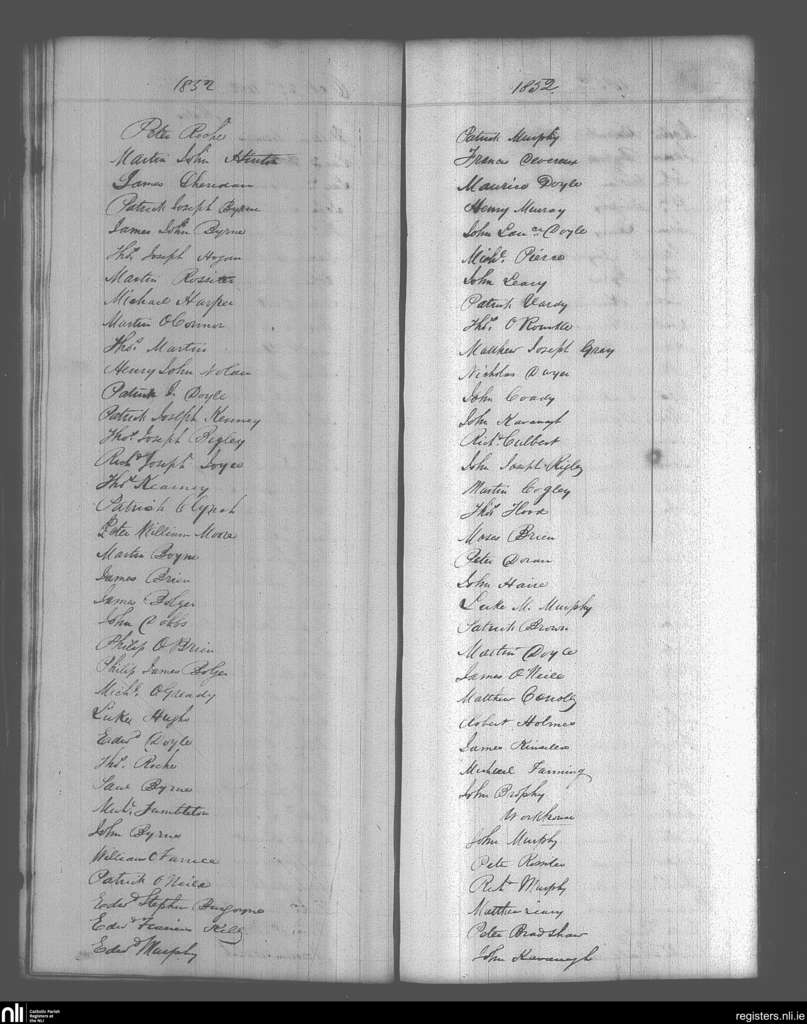 1852
Peter Roche
Martin John Hinton
James Sheridan
Patrick Joseph Byrne
James John Byrne
Thos Joseph Hogan
Martin Rossiter
Michael Harper
Martin O Connor
Thos Martin
Henry John Nolan
Patrick J. Doyle
Patrick Joseph Kenney
Thos Joseph Begley
Richd Joseph Joyce
Thos Kearney
Patrick Clynch
Peter William Moore
Martin Boyne
James Brien
James Bolger
John Dobbs
Philip O Brien
Philip James Bolger
Michl O Gready
Luke Hughs
Edwd Doyle
Thos Roche
Laue Byrne
Michl Tumbleton
John Byrne
William C Farrell
Patrick O Neill
Edwd Stephen Burgoyne
Edwd Francis Kelly
Edwd Murphy
1852
Patrick Murphy
Francis Devereux
Maurice Doyle
Henry Murray
John Laur ce Doyle
Michl Pierce
John Leary
Patrick Vardy
Thos O Rourke
Matthew Joseph Gray
Nicholas Dwyer
John Coady
John Kavanagh
Richd Culbert
John Joseph Rigley
Martin Cogley
Thos Flood
Moses Brien
Peter Doran
John Haire
Luke M. Murphy
Patrick Brown
Martin Doyle
James O Neill
Matthew Connolly
Robert Holmes
James Kinsella
Michael Fanning
John Brophy
Workhouse
John Murphy
Peter
Richd Murphy
Matthew Leary
Peter Bradshaw
John Kavanagh
nli
Catholic Parish
Registers at
the NLI
registers.nli.ie